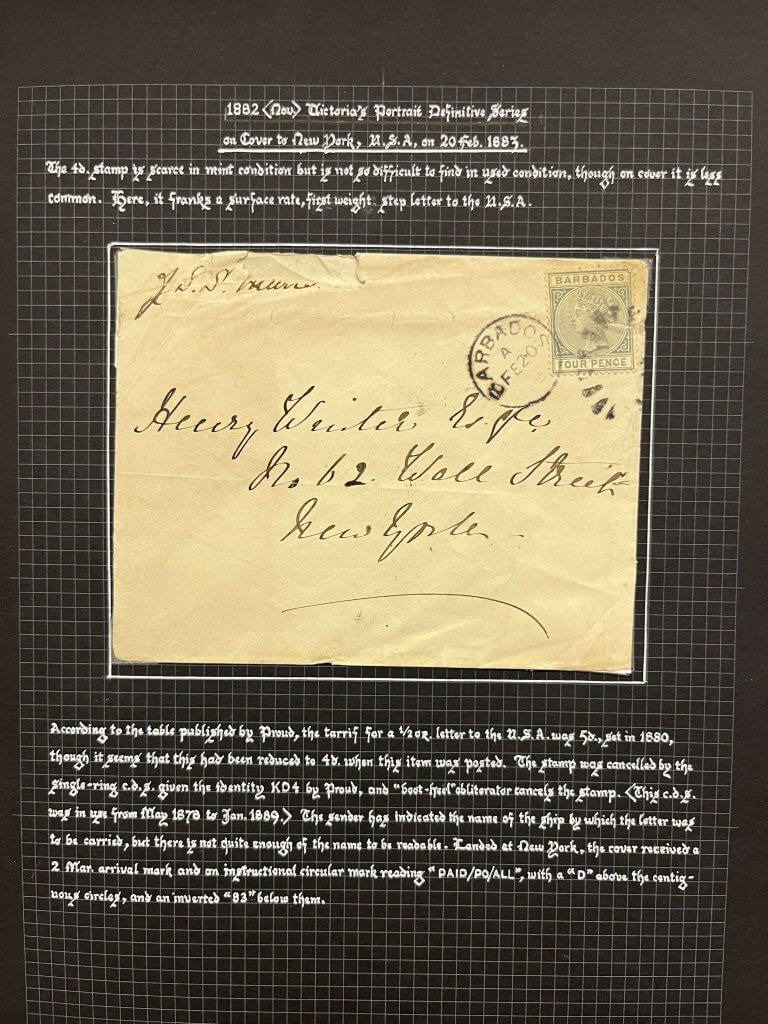 1882 <Nov> Victoria's Portrait Definitive Series
on Cover to New York, U.S.A, on 20 Feb. 1883.
The 4d. stamp is scarce in mint condition but is not so difficult to find in used condition, though on cover it is less
common. Here, it franks a surface rate, first weight step letter to the U.S.A.
BARBADOS
FOUR PENCE
BARBADOS
A
FE 20
Henry Winter Esqre
No 62. Wall Street
New York
According to the table published by Proud, the tarrif for a ½oz. letter to the U.S.A. was 5d., set in 1880,
though it seems that this had been reduced to 4d. when this item was posted. The stamp was cancelled by the
single-ring c.d.s. given the identity KD4 by Proud, and "boot-heel" obliterator cancels the stamp. <This c.d.s.
was in use from May 1878 to Jan. 1889.> The sender has indicated the name of the ship by which the letter was
to be carried, but there is not quite enough of the name to be readable. Landed at New York, the cover received a
2 Mar. arrival mark and an instructional circular mark reading "PAID/PO/ALL", with a "D" above the contig-
uous circles, and an inverted "83" below them.